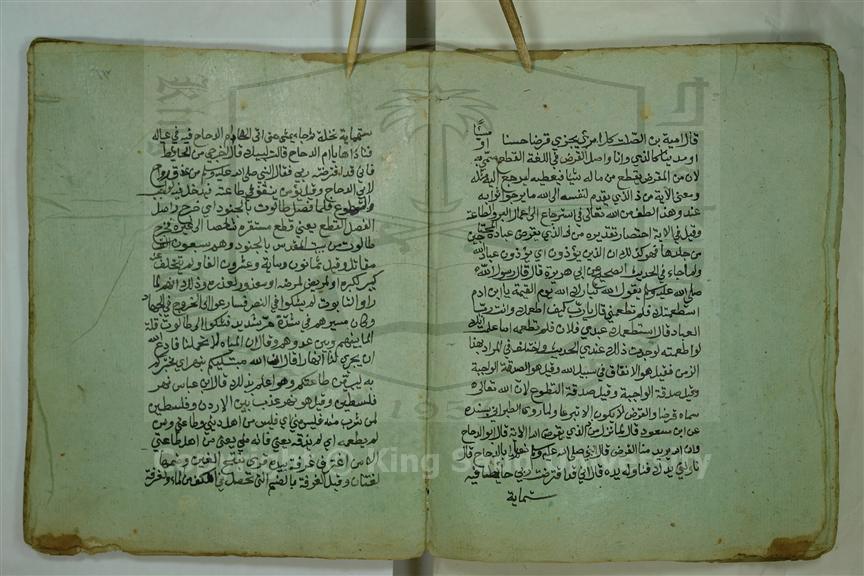 قال امية بن الصلت كل امرئ يجزى قرضا حسنا
او مدينا كالذي وانا واصل القرض في اللغة القطع سمي به
لان من المقرض يقطع من ماله شيئا فيعطيه ليرجع اليه مثله
ومعنى الاية من ذا الذي يقدم لنفسه الى الله ما يرجو ثوابه
عنده وهذا الطف من الله تعالى في استرجاع الى اعمال البر والطاعة
وقيل في الاية اختصار تقديره من ذا الذي يقرض عباد الله
من خلقه فهو كذلك ان الذين يؤذون اي يؤذون عباد الله
ولما جاء في الحديث الصحيح عن ابي هريرة قال قال رسول الله
صلى الله عليه وسلم يقول الله تبارك الله يوم القيمة يا ابن ادم
استطعمتك فلم تطعمني قال يا رب كيف اطعمك وانت رب
العباد قال استطعمك عبدي فلان فلم تطعمه اما علمت انك
لو اطعمته لوجدت ذلك عندي الحديث واختلف في المراد بهذا
القرض فقيل هو الانفاق في سبيل الله وقيل هو الصدقة الواجبة
وقيل صدقة الواجبة وقيل صدقة التطوع لان الله تعالى
سماه قرضا والقرض لا يكون الا تبرعا ولما روى الطبراني بسنده
عن ابن مسعود قال لما نزل من ذا الذي يقرض الله الاية قال ابو الدحاح
وان الله يريد منا القرض قال النبي صلى الله عليه وسلم نعم يا ابا الدحاح قال
ناولني يدك فناوله يده قال اني قد اقرضت ربي حايطا فيه
ستماية
ستماية نخلة ثم جاء يمشي حتى اتى الحايط وام الدحاح فيه في عياله
فناداها يا ام الدحاح قالت لبيك قال اخرجي من الحايط
فاني قد اقرضته ربي فقال النبي صلى الله عليه وسلم كم من عذق
لابي الدحاح وقيل يؤمن ينفق في طاعته فيدخل فيه
والتطوع فلما فصل طالوت بالجنود اي خرج واصل
الفصل القطع يعني قطع مستقره شاخصا الى غيره فخرج
طالوت من بيت المقدس بالجنود وهو سبعون الف
مقاتل وقيل ثمانون وماية وعشرون الفا ولم يتخلف عنه
كبير لكبره او لمريض لمرضه او معذور لعذره وذلك انهم لما
راوا التابوت لم يشكوا في النصر فسارعوا الى الخروج في الجهاد
وكان مسيرهم في شدة حر شديد فشكوا الى طالوت قلة
الماء بينهم وبين عدوهم وقالوا ان المياه لا تحملنا فادع الله
ان يجري لنا انهارا قال ان الله مبتليكم بنهر اي يختبركم
به ليبين طاعتكم وهو اعلم بذلك قال ابن عباس نهر
فلسطين وقيل هو نهر عذب بين الاردن وفلسطين
لمن شرب منه فليس مني اي فليس من اهل ديني وطاعتي ومن
لم يطعمه اي لم يذقه يعني فانه مني يعني من اهل طاعتي
الا من اغترف غرفة بيده قرئ بفتح الغين وضمها
لغتان وقيل الغرفة بالضم التي تحصل في الكف من الماء والغرفة
Copyright © King Saud University